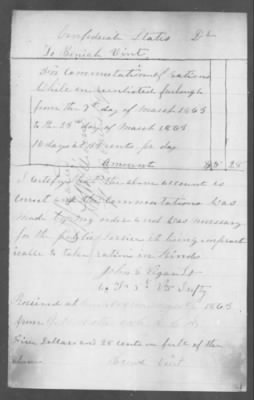 Confederate States Dr
To Beniah Vint
For Commutation of rations
while on reenlisted furlough
from the 9th day of March 1863
to the 25th day of March 1863
16 days at 33 cents per day
Amount $5 28
I certify that the above account is
correct and the commutations was
made by my order and was necessary
for the public service it being impract
icable to take rations in kinds
John S.
Co 31st Va Infty
Received at 1863
from
Five Dollars and 28 cents in full of the
above
Vint